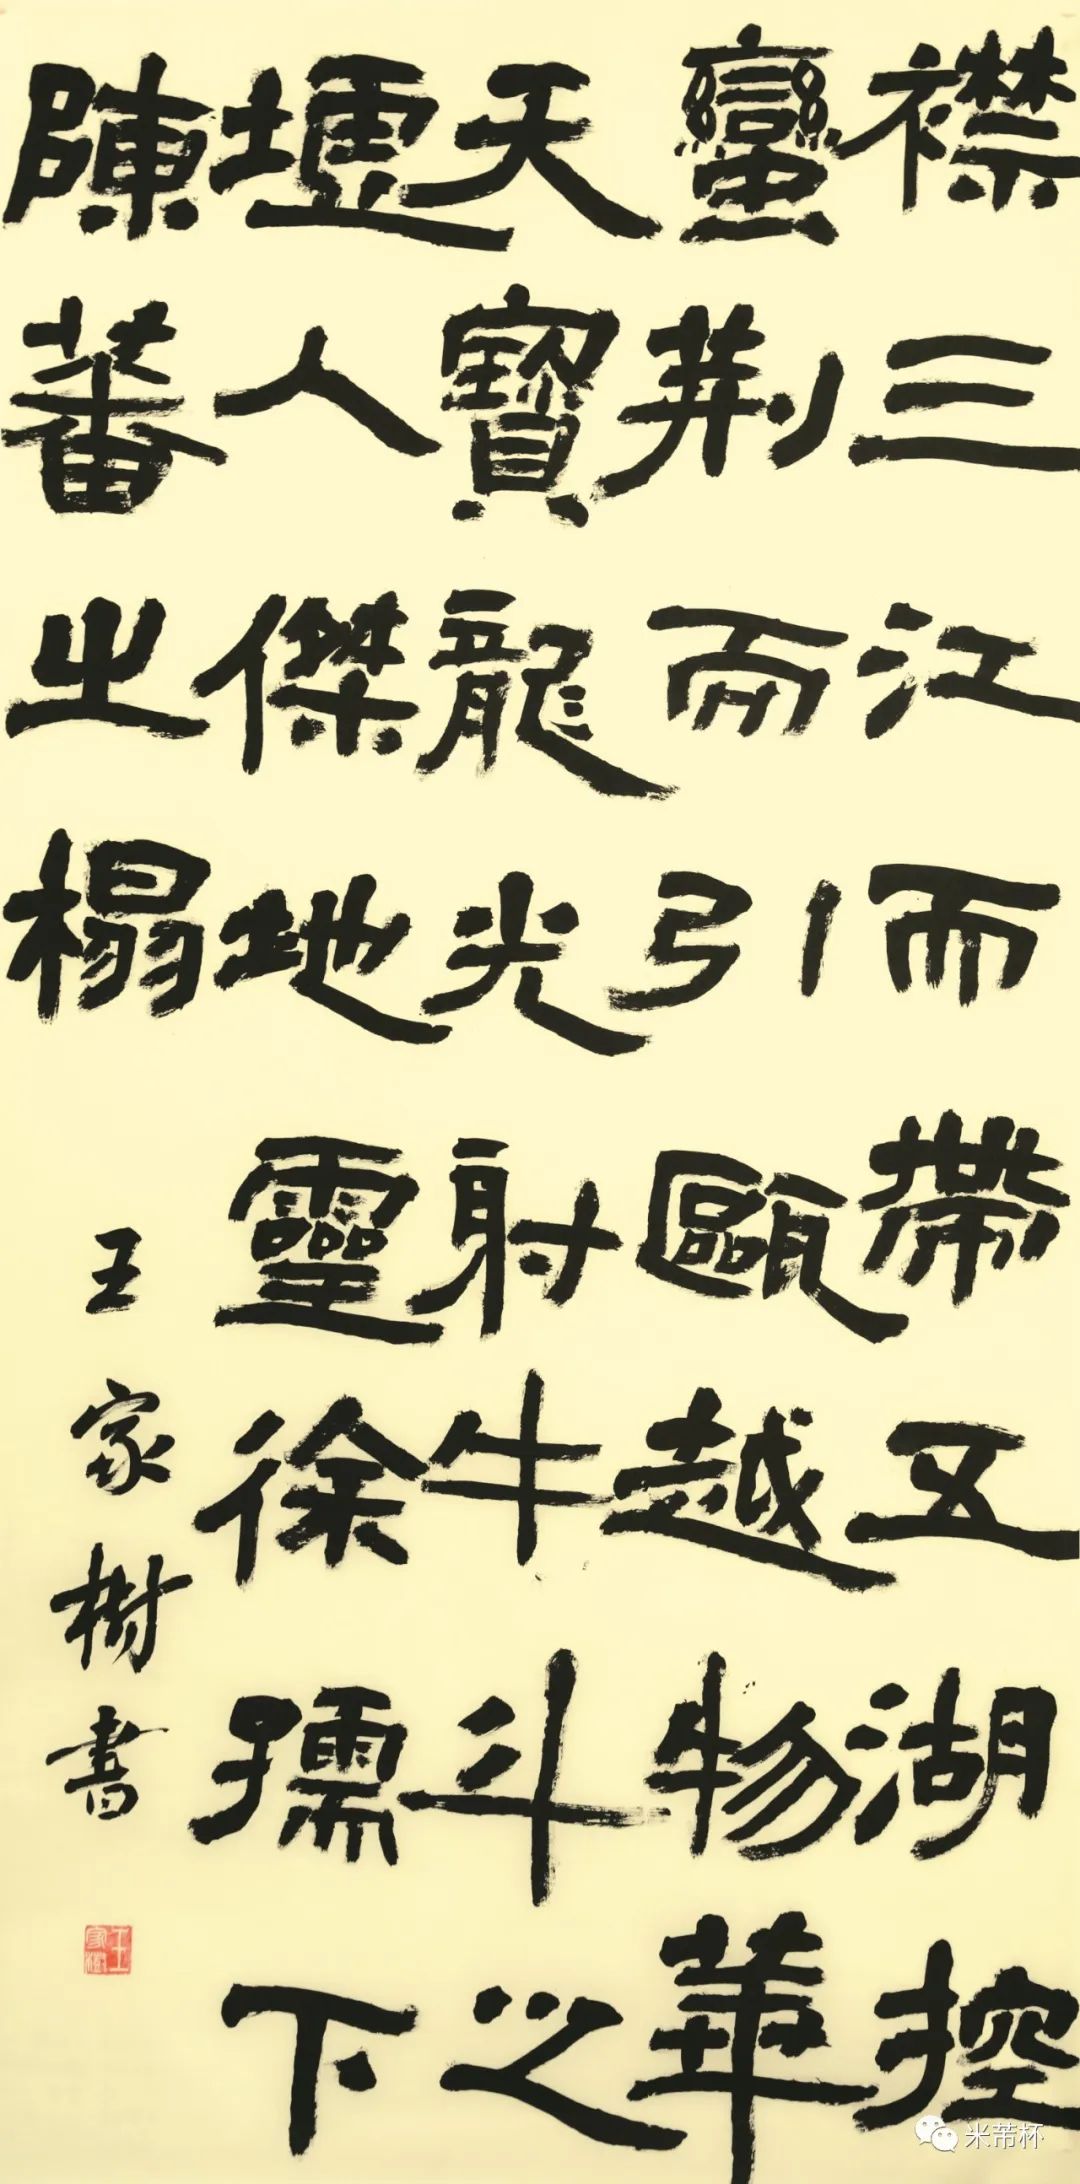 襟三江而帶五湖控
蠻荆而引甌越物華
天寶龍光射牛斗之
墟人傑地靈徐孺下
陳蕃之榻
王家樹書
王家樹
米芾杯